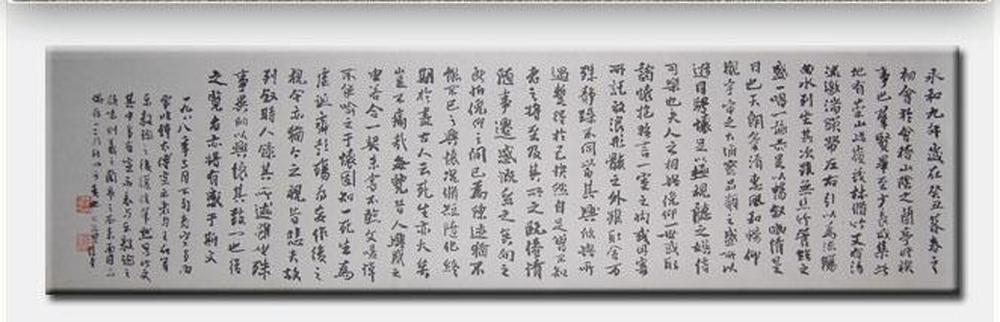 永和九年歲在癸丑暮春之
初會於會稽山陰之蘭亭脩禊
事也羣賢畢至少長咸集此
地有崇山峻領茂林脩竹又有清
流激湍暎帶左右引以為流觴
曲水列坐其次雖無絲竹管絃之
盛一觴一詠亦足以暢敘幽情是
日也天朗氣清惠風和暢仰
觀宇宙之大俯察品類之盛所以
遊目騁懷足以極視聽之娛信
可樂也夫人之相與俯仰一世或取
諸懷抱悟言一室之內或因寄
所託放浪形骸之外雖趣舍萬
殊靜躁不同當其欣於所
遇暫得於己快然自足不知
老之將至及其所之既惓情
隨事遷感慨係之矣向之
所欣俛仰之間已為陳迹猶不
能不以之興懷況脩短隨化終
期於盡古人云死生亦大矣
豈不痛哉每覽昔人興感之
由若合一契未嘗不臨文嗟悼
不能喻之於懷固知一死生為
虛誕齊彭殤為妄作後之
視今亦猶今之視昔悲夫故
列敘時人錄其所述雖世殊
事異所以興懷其致一也後
之覽者亦將有感於斯文
一九八八年